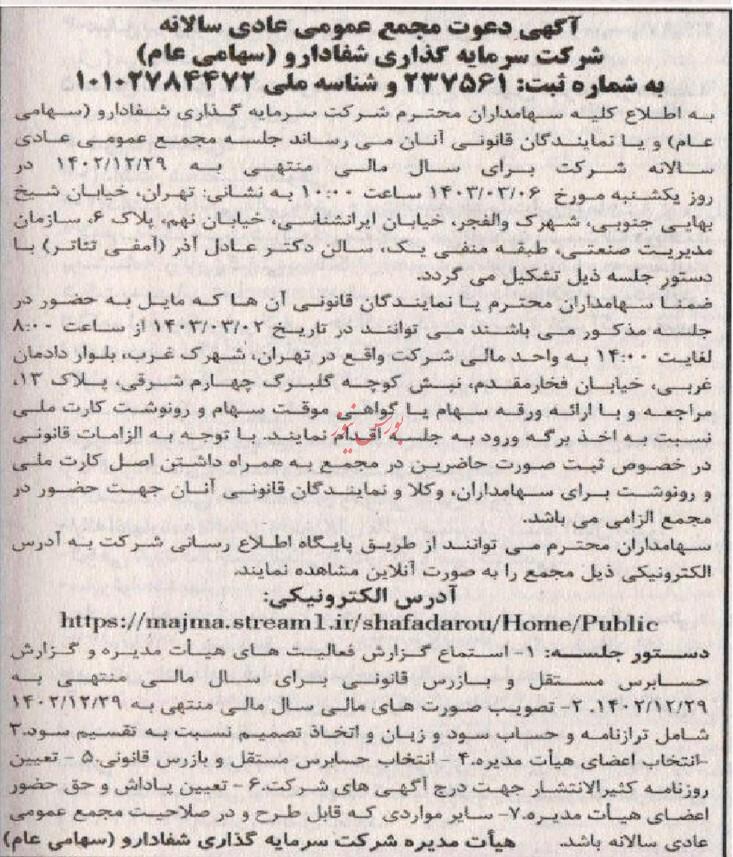 آگهی دعوت مجمع عمومی عادی سالانه
شرکت سرمایه گذاری شفادارو (سهامی عام)
به شماره ثبت: ۲۳۷۵۶۱ و شناسه ملی ۱۰۱۰۲۷۸۴۴۷۲
به اطلاع کلیه سهامداران محترم شرکت سرمایه گذاری شفادارو (سهامی
عام) و یا نمایندگان قانونی آنان می رساند جلسه مجمع عمومی عادی
سالانه شرکت برای سال مالی منتهی به ۱۴۰۲/۱۲/۲۹ در
روز یکشنبه مورخ ۱۴۰۳/۰۳/۰۶ ساعت ۱۰:۰۰ به نشانی: تهران، خیابان شیخ
بهایی جنوبی، شهرک والفجر، خیابان ایرانشناسی، خیابان نهم، پلاک ۶، سازمان
مدیریت صنعتی، طبقه منفی یک، سالن دکتر عادل آذر (آمفی تئاتر) با
دستور جلسه ذیل تشکیل می گردد.
ضمنا سهامداران محترم یا نمایندگان قانونی آن ها که مایل به حضور در
جلسه مذکور می باشند می توانند در تاریخ ۱۴۰۳/۰۳/۰۲ از ساعت ۸:۰۰
لغایت ۱۴:۰۰ به واحد مالی شرکت واقع در تهران، شهرک غرب، بلوار دادمان
غربی، خیابان فخارمقدم، نبش کوچه گلبرگ چهارم شرقی، پلاک ۱۳،
مراجعه و با ارائه ورقه سهام یا گواهی موقت سهام و رونوشت کارت ملی
بورس نیوز
نسبت به اخذ برگه ورود به جلسه اقدام نمایند. با توجه به الزامات قانونی
در خصوص ثبت صورت حاضرین در مجمع به همراه داشتن اصل کارت ملی
و رونوشت برای سهامداران، وکلا و نمایندگان قانونی آنان جهت حضور در
مجمع الزامی می باشد.
سهامداران محترم می توانند از طریق پایگاه اطلاع رسانی شرکت به آدرس
الکترونیکی ذیل مجمع را به صورت آنلاین مشاهده نمایند.
آدرس الکترونیکی:
https://majma.stream1.ir/shafadarou/Home/Public
دستور جلسه: ۱- استماع گزارش فعالیت های هیأت مدیره و گزارش
حسابرس مستقل و بازرس قانونی برای سال مالی منتهی به
۱۴۰۲/۱۲/۲۹. ۲- تصویب صورت های مالی سال مالی منتهی به ۱۴۰۲/۱۲/۲۹
شامل ترازنامه و حساب سود و زیان و اتخاذ تصمیم نسبت به تقسیم سود.۳
-انتخاب اعضای هیأت مدیره.۴ - انتخاب حسابرس مستقل و بازرس قانونی.۵ - تعیین
روزنامه کثیرالانتشار جهت درج آگهی های شرکت.۶ - تعیین پاداش و حق حضور
اعضای هیأت مدیره.۷- سایر مواردی که قابل طرح و در صلاحیت مجمع عمومی
عادی سالانه باشد. هیأت مدیره شرکت سرمایه گذاری شفادارو (سهامی عام)